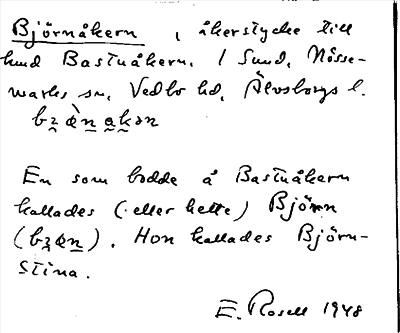 Björnåkern, åkerstycke till
hmd Bastuåkern. / Sund, Nösse-
marks sn, Vedbo hd, Älvsborgs l.
bʒǿn åkən
En som bodde å Bastuåkern
kallades (: eller hette) Björn
(bʒøn). Hon kallades Björn-
stina.
E. Rosell 1948